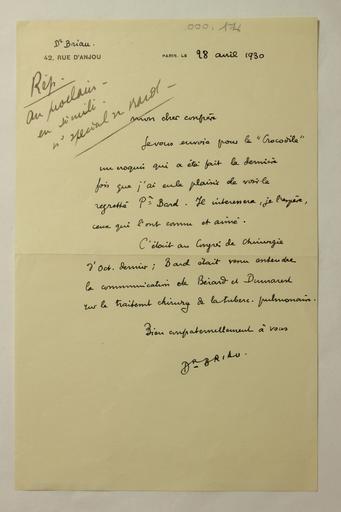 000.174
Dr Briau.
42, RUE D'ANJOU
PARIS, LE 28 avril 1930
Rép.
au prochain
en simili
n° spécial
mon cher confrère
Je vous envoie pour le "Crocodile"
un croquis qui a été fait la dernière
fois que j'ai eu le plaisir de voir le
regretté Pr Bard. Il interessera, je l'espère,
ceux qui l'ont connu et aimé.
C'était au Congrès de Chirurgie
d'Oct. dernier ; Bard était venu entendre
la communication de Bérard et Dumarest
sur le traitemt chirurg de la tuberc. pulmonaire.
Bien confraternellement à vous
Dr BRIAU.